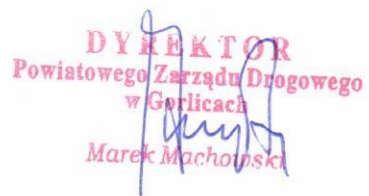 DYREKTOR
Powiatowego Zarządu Drogowego
w Gorlicach
Marek Machowski